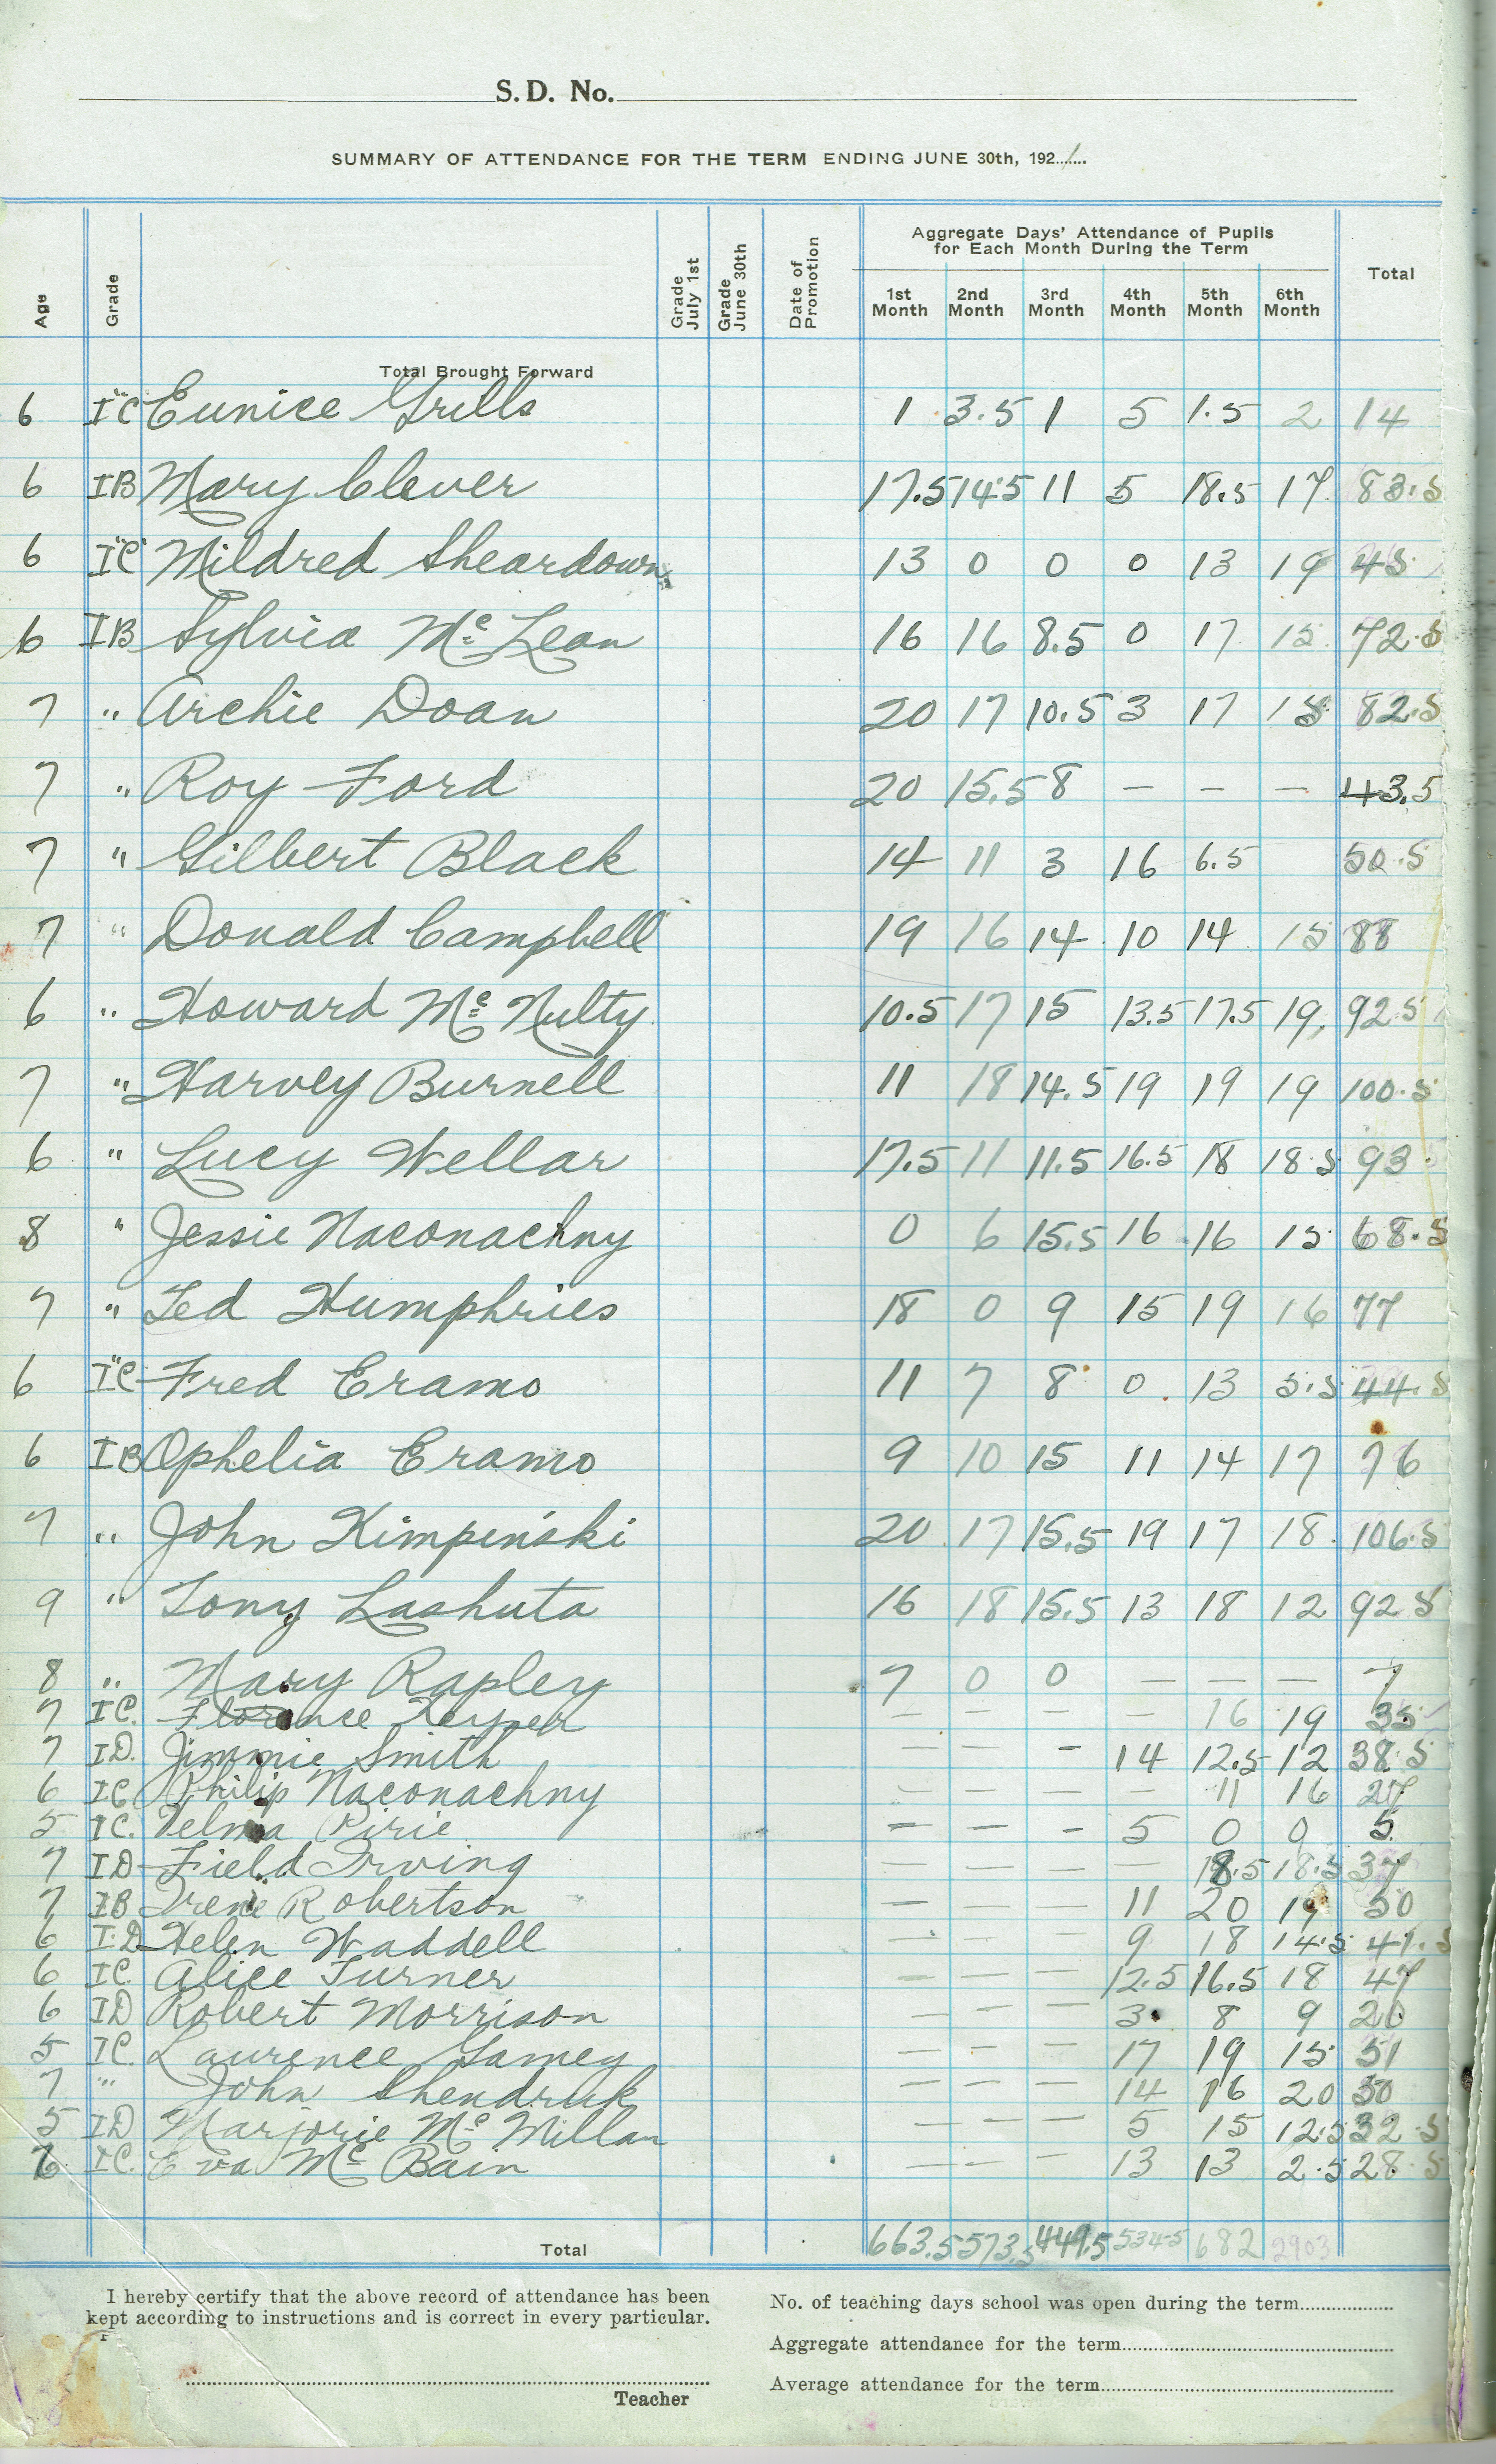 S. D. No.
SUMMARY OF ATTENDANCE FOR THE TERM ENDING JUNE 30th, 1921
Age Grade Grade July 1st Grade June 30th Date of Promotion Aggregate Days' Attendance of Pupils for Each Month During the Term Total
1st Month 2nd Month 3rd Month 4th Month 5th Month 6th Month
Total Brought Forward
6 I"C" Eunice Grills 1 3.5 1 5 1.5 2 14
6 IB Mary Clever 17.5 14.5 11 5 18.5 17 83.5
6 I"C" Mildred Sheardown 13 0 0 0 13 19 45
6 IB Sylvia Mc Lean 16 16 8.5 0 17 15 72.5
7 " Archie Doan 20 17 10.5 3 17 15 82.5
7 " Roy Ford 20 15.5 8 — — — 43.5
7 " Gilbert Black 14 11 3 16 6.5 50.5
7 " Donald Campbell 19 16 14 10 14 15 88
6 " Howard Mc Nulty 10.5 17 15 13.5 17.5 19 92.5
7 " Harvey Burnell 11 18 14.5 19 19 19 100.5
6 " Lucy Wellar 17.5 11 11.5 16.5 18 18.5 93
8 " Jessie Naconachny 0 6 15.5 16 16 15 68.5
7 " Ted Humphries 18 0 9 15 19 16 77
6 I"C" Fred Eramo 11 7 8 0 13 5.5 44.5
6 IB Ophelia Eramo 9 10 15 11 14 17 76
7 " John Kimpeński 20 17 15.5 19 17 18 106.5
9 " Tony Lashuta 16 18 15.5 13 18 12 92.5
8 " Mary Rapley 7 0 0 — — — 7
7 IC. Florence Keyper — — — — 16 19 35
7 ID. Jimmie Smith — — — 14 12.5 12 38.5
6 IC Philip Naconachny — — — — 11 16 27
5 IC. Velma Pirie — — — 5 0 0 5
7 ID Field Irving — — — — 18.5 18.5 37
7 IB Irene Robertson — — — 11 20 19 50
6 I.D Helen Waddell — — — 9 18 14.5 41.5
6 IC. Alice Turner — — — 12.5 16.5 18 47
6 ID Robert Morrison — — — 3 8 9 20
5 IC. Laurence Gamey — — — 17 19 15 51
7 " John Shendruk — — — 14 16 20 50
5 ID Marjorie Mc Millan — — — 5 15 12.5 32.5
IC. Eva Mc Bain — — — 13 13 2.5 28.5
Total 663.5 573.5 449.5 534.5 682 2903
I hereby certify that the above record of attendance has been
kept according to instructions and is correct in every particular.
Teacher
No. of teaching days school was open during the term
Aggregate attendance for the term
Average attendance for the term